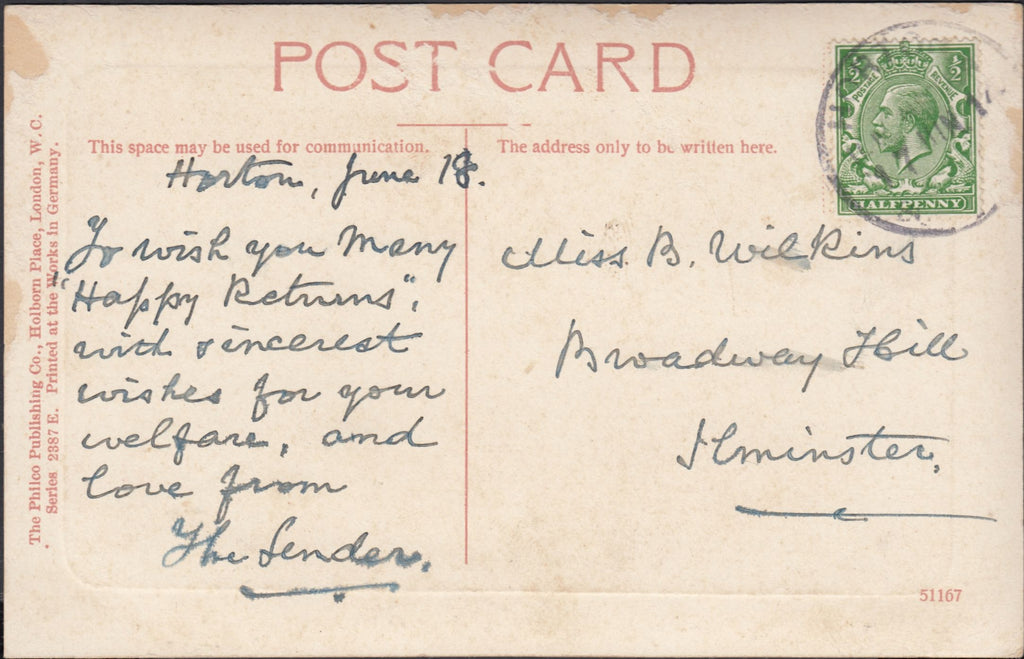 POST CARD
This space may be used for communication.
The address only to be written here.
½ ½
POSTAGE REVENUE
HALFPENNY
17 JUN 14
Horton, June 18.
To wish you Many
"Happy Returns",
with sincerest
wishes for your
welfare, and
love from
The Sender.
Miss B. Wilkins
Broadway Hill
Ilminster.
The Philco Publishing Co., Holborn Place, London, W.C.
Series 2387 E. Printed at the Works in Germany.
51167